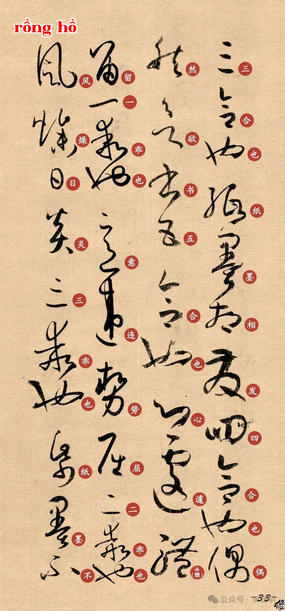 rồng hồ
三合也纸墨相发四合也偶
然欲书五合也心遽體
留一乖也意违势屈二乖也
风燥日炎三乖也纸墨不
公众号
-33-